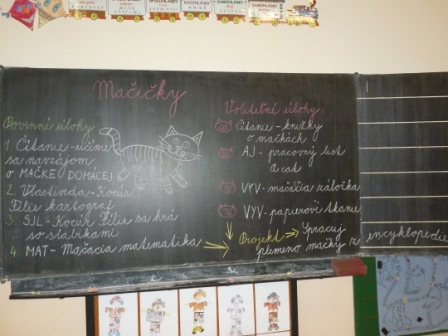 Mačičky
Povinné úlohy:
1. Čítanie - učíme
sa navzájom
o MAČKE DOMÁCEJ
2. Vlastiveda - Kocúr
Filie kartograf
3. SJL - Kocúr Filie sa hrá
so slabikami
4. MAT - Mačacia matematika
Voliteľné úlohy:
Čítanie - knižky
o mačkách
AJ - pracovný list
a cat
VYV - mačacia záložka
VYV - papierové tkanie
Projekt
Spracuj
plemeno mačky z encyklopédie